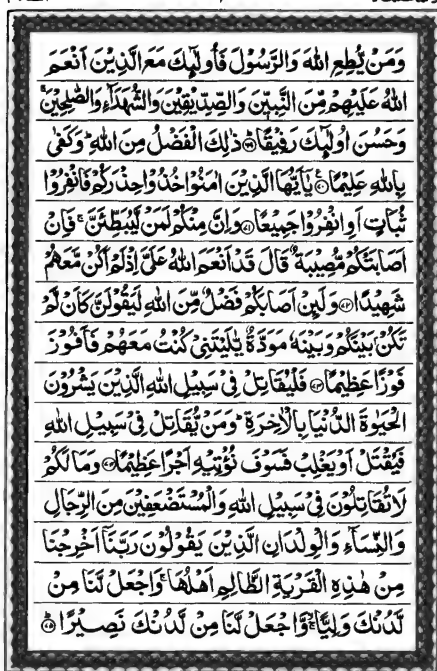 وَمَنْ يُّطِعِ اللهَ وَالرَّسُوْلَ فَاُولٰٓئِكَ مَعَ الَّذِيْنَ اَنْعَمَ
اللهُ عَلَيْهِمْ مِّنَ النَّبِيّٖنَ وَالصِّدِّيْقِيْنَ وَالشُّهَدَآءِ وَالصّٰلِحِيْنَ ۚ
وَحَسُنَ اُولٰٓئِكَ رَفِيْقًا ؕ﴿۶۹﴾ ذٰلِكَ الْفَضْلُ مِنَ اللهِ ؕ وَكَفٰى
بِاللهِ عَلِيْمًا ﴿۷۰﴾ يٰٓاَيُّهَا الَّذِيْنَ اٰمَنُوْا خُذُوْا حِذْرَكُمْ فَانْفِرُوْا
ثُبَاتٍ اَوِ انْفِرُوْا جَمِيْعًا ﴿۷۱﴾ وَاِنَّ مِنْكُمْ لَمَنْ لَّيُبَطِّئَنَّ ۚ فَاِنْ
اَصَابَتْكُمْ مُّصِيْبَةٌ قَالَ قَدْ اَنْعَمَ اللهُ عَلَيَّ اِذْ لَمْ اَكُنْ مَّعَهُمْ
شَهِيْدًا ﴿۷۲﴾ وَلَئِنْ اَصَابَكُمْ فَضْلٌ مِّنَ اللهِ لَيَقُوْلَنَّ كَاَنْ لَّمْ
تَكُنْۢ بَيْنَكُمْ وَبَيْنَهٗ مَوَدَّةٌ يّٰلَيْتَنِيْ كُنْتُ مَعَهُمْ فَاَفُوْزَ
فَوْزًا عَظِيْمًا ﴿۷۳﴾ فَلْيُقَاتِلْ فِيْ سَبِيْلِ اللهِ الَّذِيْنَ يَشْرُوْنَ
الْحَيٰوةَ الدُّنْيَا بِالْاٰخِرَةِ ؕ وَمَنْ يُّقَاتِلْ فِيْ سَبِيْلِ اللهِ
فَيُقْتَلْ اَوْ يَغْلِبْ فَسَوْفَ نُؤْتِيْهِ اَجْرًا عَظِيْمًا ﴿۷۴﴾ وَمَا لَكُمْ
لَا تُقَاتِلُوْنَ فِيْ سَبِيْلِ اللهِ وَالْمُسْتَضْعَفِيْنَ مِنَ الرِّجَالِ
وَالنِّسَآءِ وَالْوِلْدَانِ الَّذِيْنَ يَقُوْلُوْنَ رَبَّنَآ اَخْرِجْنَا
مِنْ هٰذِهِ الْقَرْيَةِ الظَّالِمِ اَهْلُهَا ۚ وَاجْعَلْ لَّنَا مِنْ
لَّدُنْكَ وَلِيًّا ۙ وَّاجْعَلْ لَّنَا مِنْ لَّدُنْكَ نَصِيْرًا ؕ﴿۷۵﴾